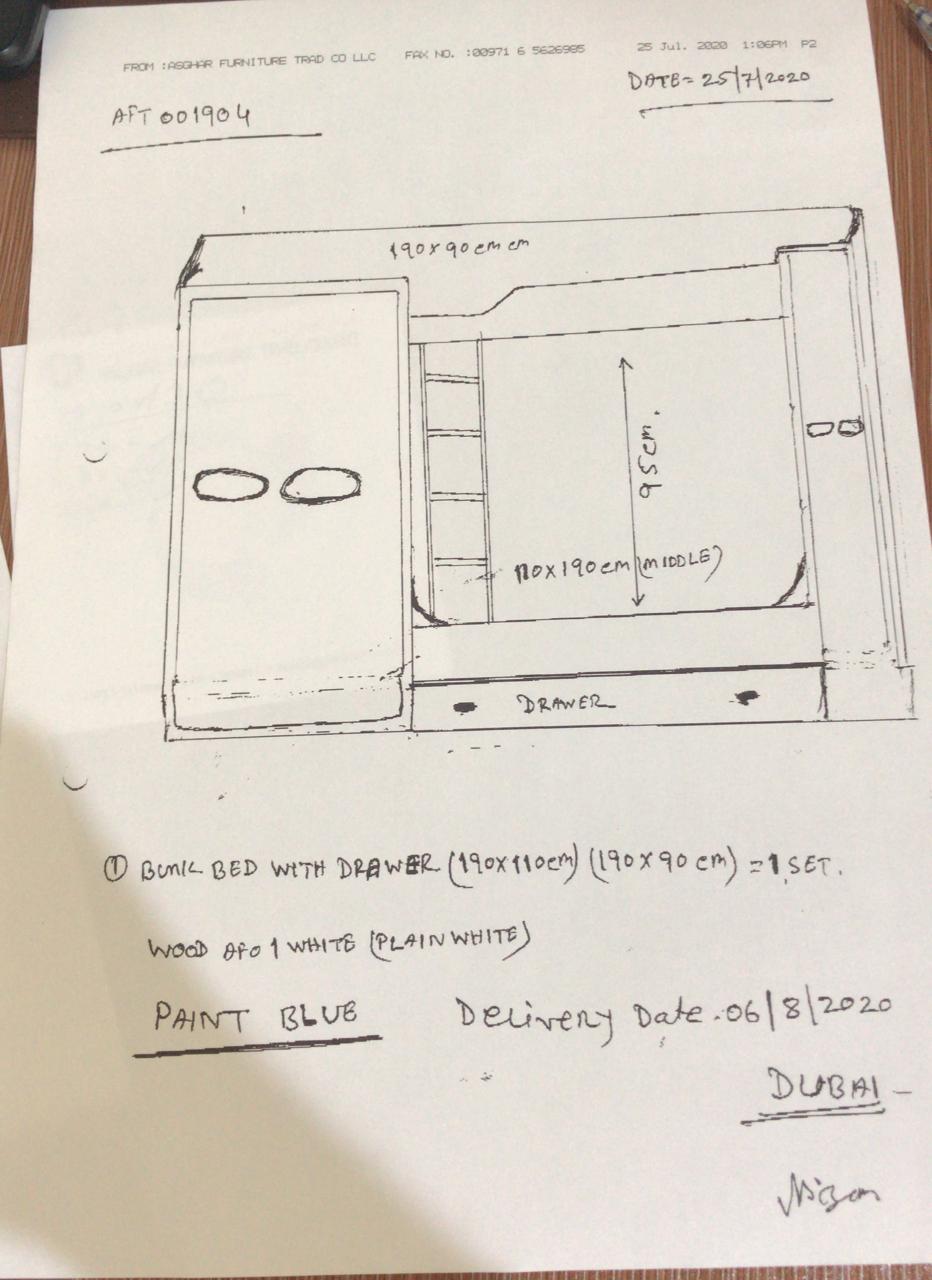 FROM :ASGHAR FURNITURE TRAD CO LLC FAX NO. :00971 6 5626985 25 Jul. 2020 1:06PM P2
DATE= 25/7/2020
AFT 001904
190x90cm cm
95cm.
110x190cm (MIDDLE)
DRAWER
① BUNK BED WITH DRAWER (190x110cm) (190x90cm) = 1 SET.
WOOD AFO 1 WHITE (PLAIN WHITE)
PAINT BLUE Delivery Date. 06/8/2020
DUBAI -